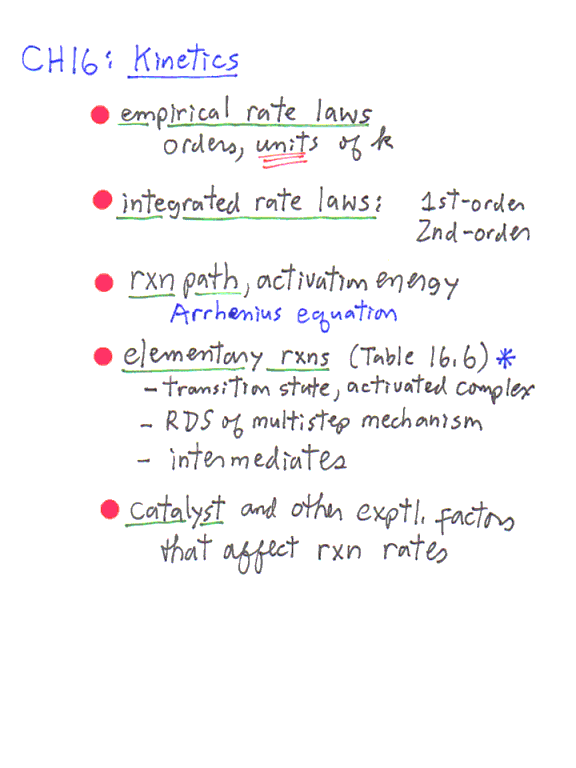 CH16: Kinetics
empirical rate laws
orders, units of k
integrated rate laws: 1st-order
2nd-order
rxn path, activation energy
Arrhenius equation
elementary rxns (Table 16.6) *
- transition state, activated complex
- RDS of multistep mechanism
- intermediates
catalyst and other exptl. factors
that affect rxn rates